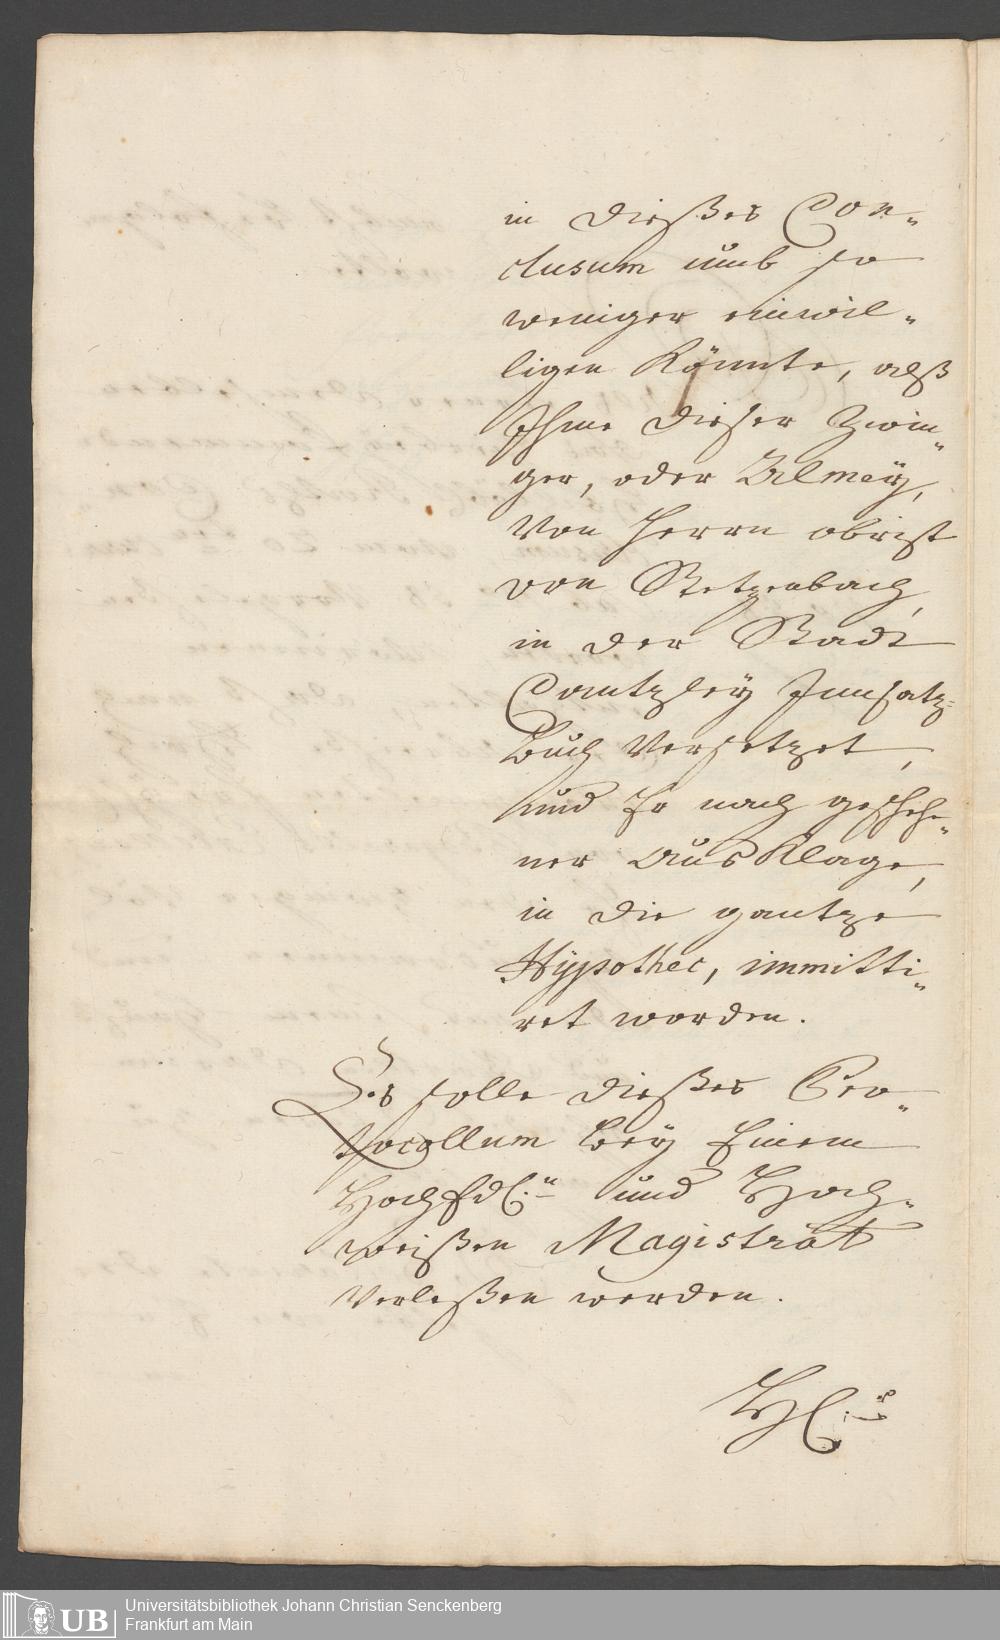 in dießes Con-
clusum umb so
weniger einwil-
ligen könnte, alß
Ihme dieser Zwin-
ger, oder Allmeÿ,
von Herrn obrist
von Stetzenbach,
in der Stadt
Cantzleÿ Innsatz-
buch versetzet,
und Er nach geschehe-
ner ausklage,
in die gantze
Hÿpothec, immitti-
ret worden.
Es solle dießes Pro-
tocollum beÿ Einem
Hoch und Hoch-
weißen Magistrat
verleßen werden.
Universitätsbibliothek Johann Christian Senckenberg
UB
Frankfurt am Main